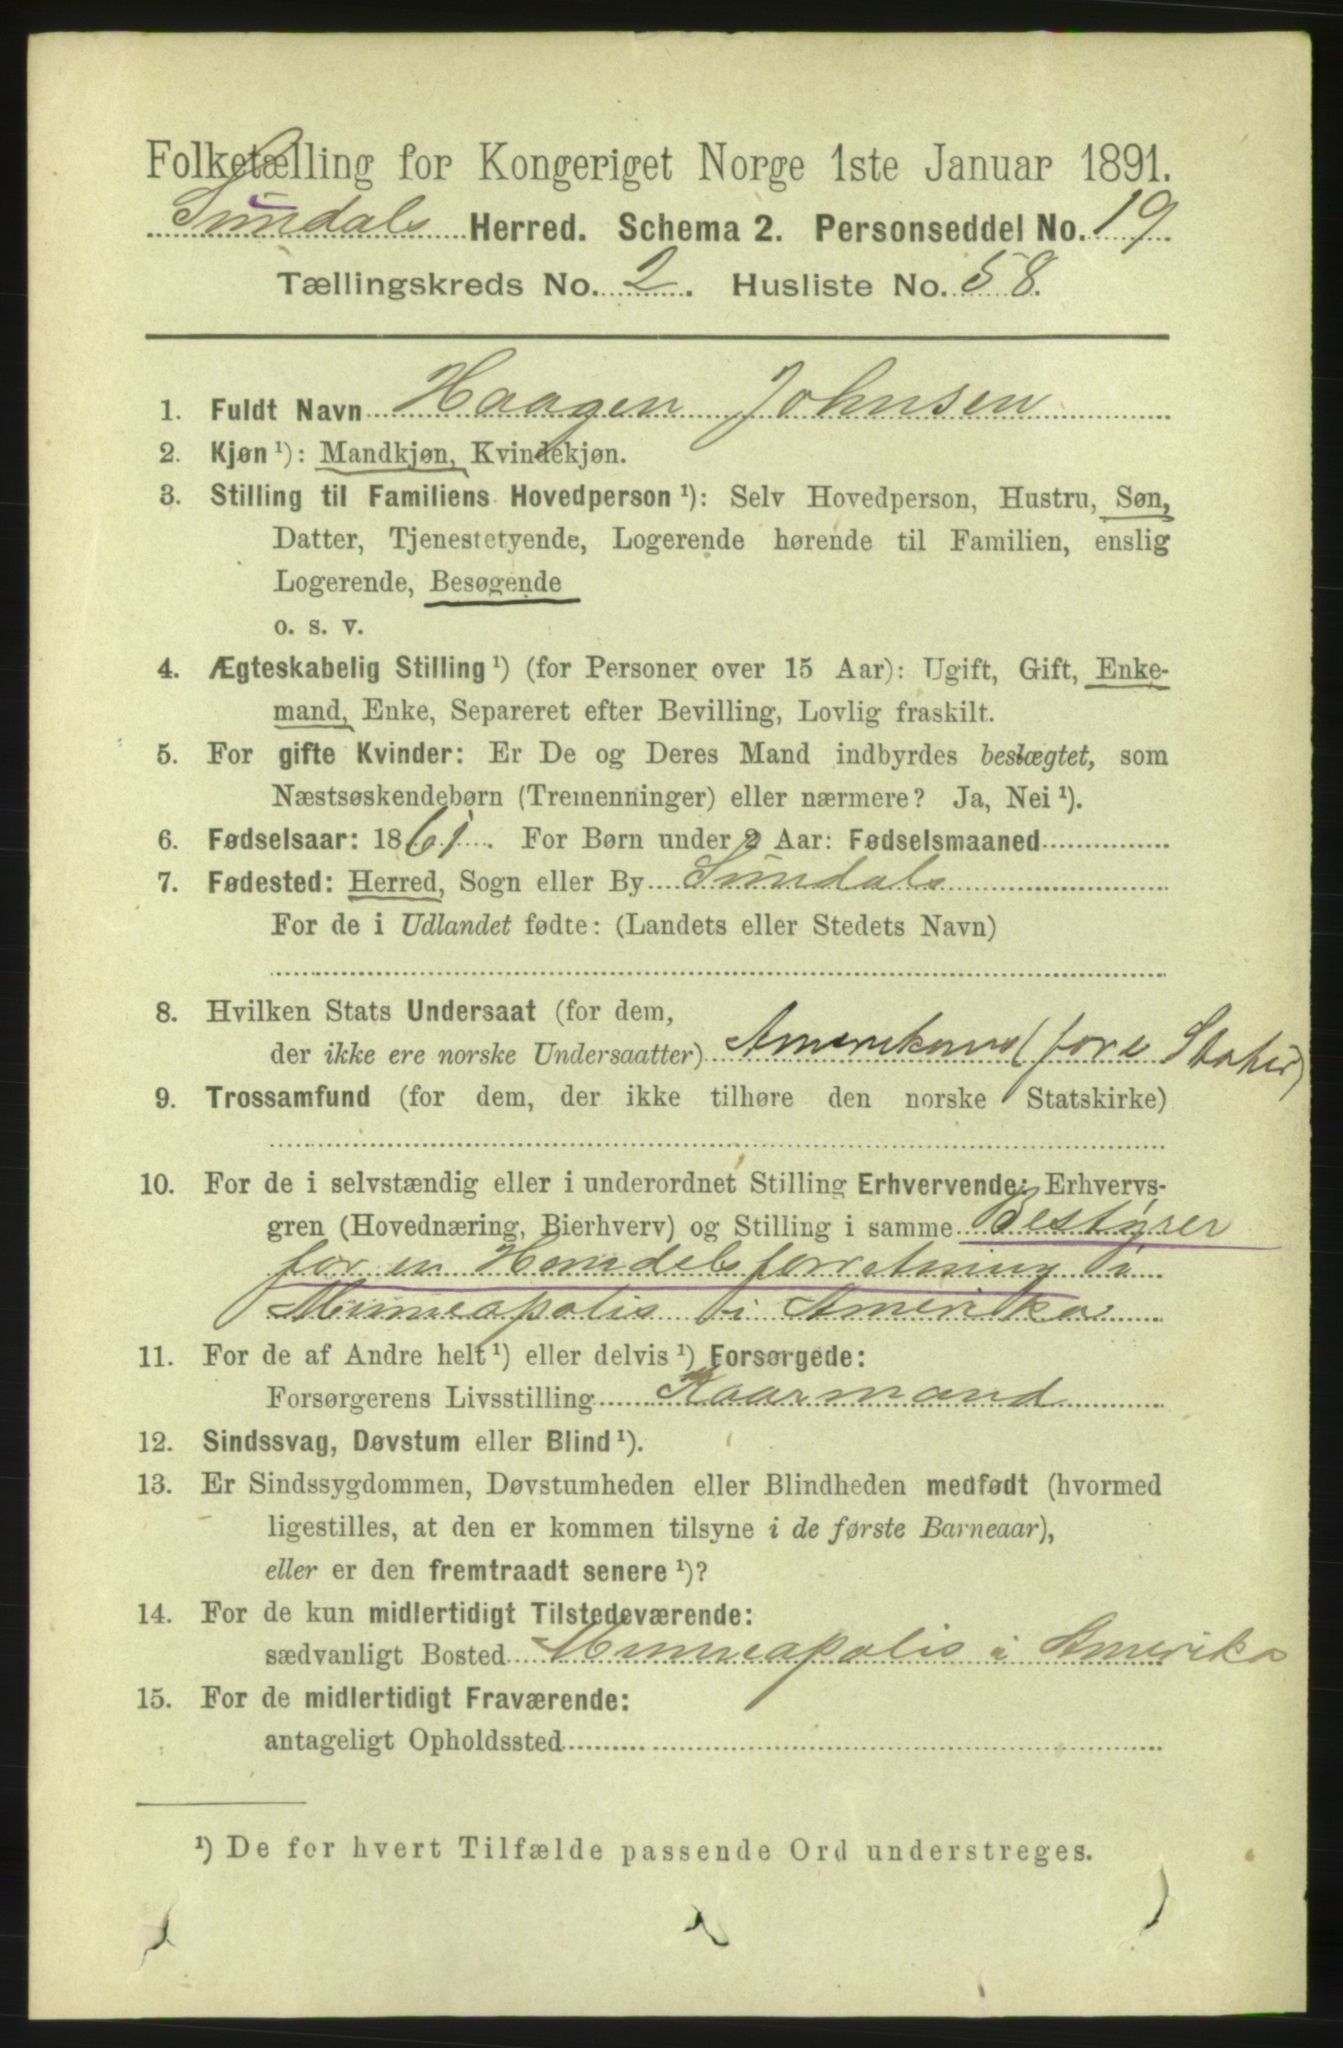 Folketælling for Kongeriget Norge 1ste Januar 1891.
Sundals Herred. Schema 2. Personseddel No. 19.
Tællingskreds No. 2. Husliste No. 58.
1. Fuldt Navn Haagen Johnsen
2. Kjøn ¹): Mandkjøn, Kvindekjøn.
3. Stilling til Familiens Hovedperson ¹): Selv Hovedperson, Hustru, Søn,
Datter, Tjenestetyende, Logerende hørende til Familien, enslig
Logerende, Besøgende
o. s. v.
4. Ægteskabelig Stilling ¹) (for Personer over 15 Aar): Ugift, Gift, Enke-
mand, Enke, Separeret efter Bevilling, Lovlig fraskilt.
5. For gifte Kvinder: Er De og Deres Mand indbyrdes beslægtet, som
Næstsøskendebørn (Tremenninger) eller nærmere? Ja, Nei ¹).
6. Fødselsaar: 1861. For Børn under 2 Aar: Fødselsmaaned
7. Fødested: Herred, Sogn eller By Sundals
For de i Udlandet fødte: (Landets eller Stedets Navn)
8. Hvilken Stats Undersaat (for dem,
der ikke ere norske Undersaatter) Amerikans (fore Stater)
9. Trossamfund (for dem, der ikke tilhøre den norske Statskirke)
10. For de i selvstændig eller i underordnet Stilling Erhvervende: Erhvervs-
gren (Hovednæring, Bierhverv) og Stilling i samme Bestyrer
for en Handelsforretning i
Minneapolis i Amerika
11. For de af Andre helt ¹) eller delvis ¹) Forsørgede:
Forsørgerens Livsstilling Kaarmand
12. Sindssvag, Døvstum eller Blind ¹).
13. Er Sindssygdommen, Døvstumheden eller Blindheden medfødt (hvormed
ligestilles, at den er kommen tilsyne i de første Barneaar),
eller er den fremtraadt senere ¹)?
14. For de kun midlertidigt Tilstedeværende:
sædvanligt Bosted Minneapolis i Amerika
15. For de midlertidigt Fraværende:
antageligt Opholdssted
¹) De for hvert Tilfælde passende Ord understreges.